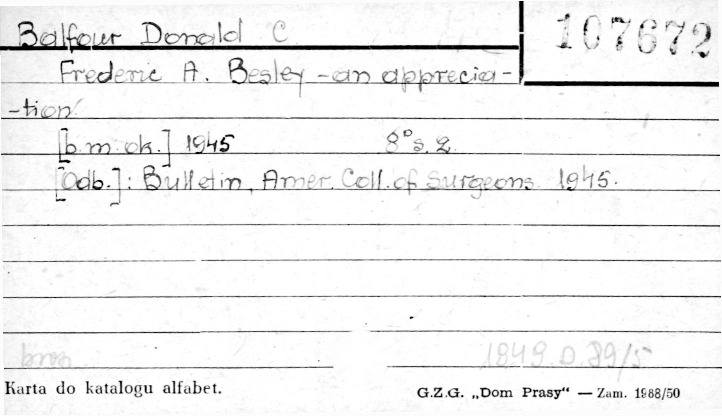 Balfour Donald C
107672
Frederic A. Besley - an apprecia-
-tion
[b.m. ok.] 1945 8° s. 2.
[Odb.]: Bulletin, Amer. Coll. of Surgeons 1945.
1849.D.89/5
Karta do katalogu alfabet.
G.Z.G. „Dom Prasy“ — Zam. 1988/50